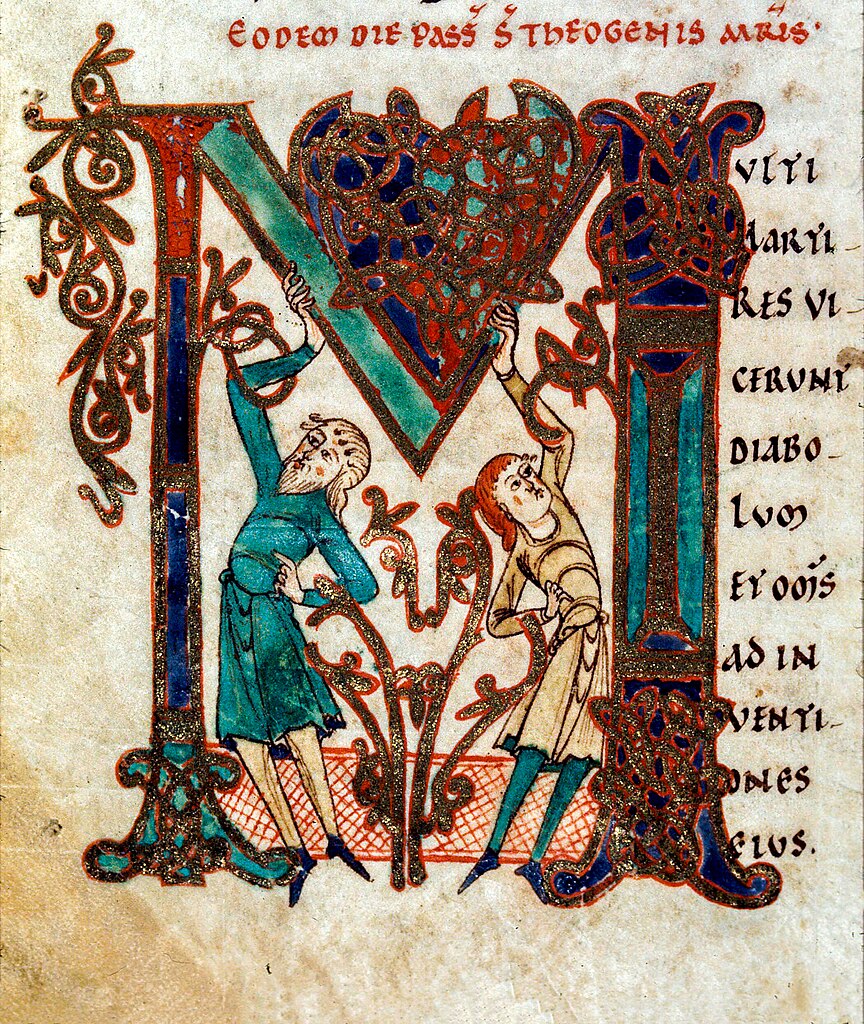 EODEM DIE PASS̄ S̄ THEOGENIS MR̄IS·
M
VLTI
MARTI-
RES VI-
CERVNT
DIABO-
LVM
ET OMS̄
AD IN
VENTI-
ONES
EIVS.